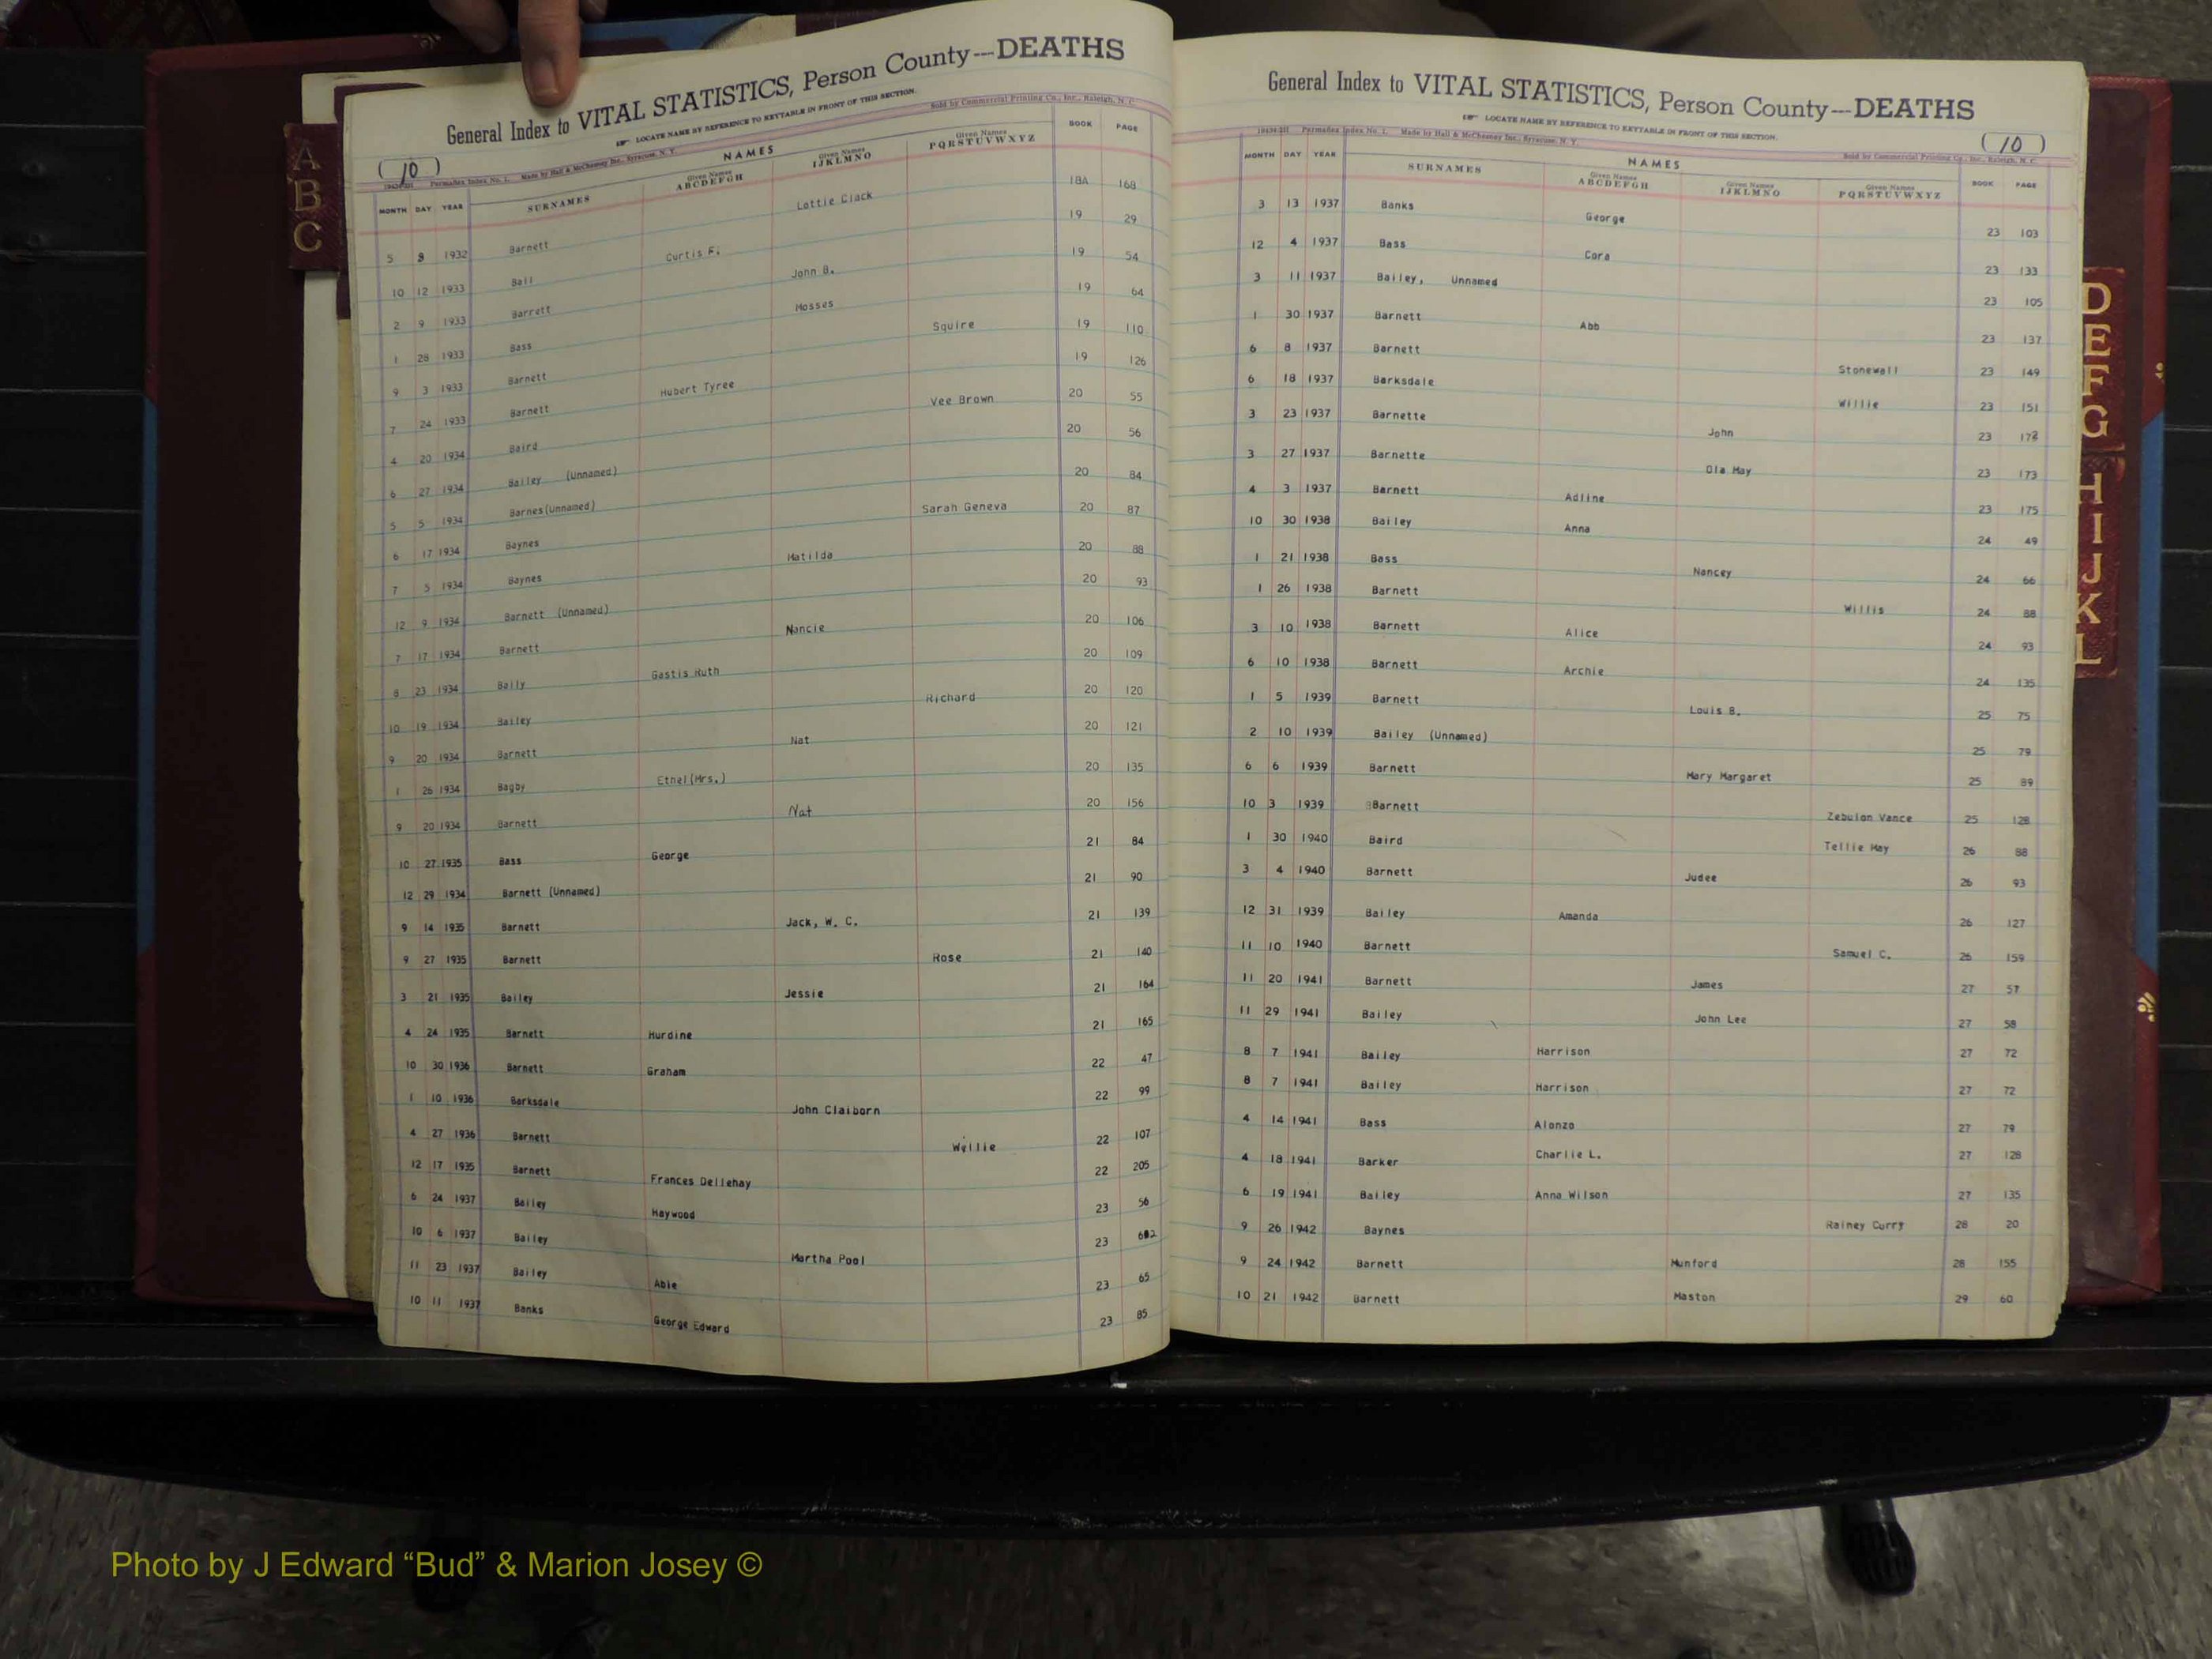 General Index to VITAL STATISTICS, Person County---DEATHS
LOCATE NAME BY REFERENCE TO KEYTABLE IN FRONT OF THIS SECTION.
Permadex Index No. 1. Made by Hall & McChesney Inc., Syracuse, N. Y. Sold by Commercial Printing Co., Inc., Raleigh, N. C.
(10)
NAMES
MONTH DAY YEAR SURNAMES Given Names ABCDEFGH Given Names IJKLMNO Given Names PQRSTUVWXYZ BOOK PAGE
5 8 1932 Barnett Lottie Clack 18A 168
10 12 1933 Ball Curtis F. 19 29
2 9 1933 Barrett John B. 19 54
1 28 1933 Bass Mosses 19 64
9 3 1933 Barnett Squire 19 110
7 24 1933 Barnett Hubert Tyree 19 126
4 20 1934 Baird Vee Brown 20 55
6 27 1934 Bailey (Unnamed) 20 56
5 5 1934 Barnes (Unnamed) 20 84
6 17 1934 Baynes Sarah Geneva 20 87
7 5 1934 Baynes Matilda 20 88
12 9 1934 Barnett (Unnamed) 20 93
7 17 1934 Barnett Nancie 20 106
8 23 1934 Baily Gastis Ruth 20 109
10 19 1934 Bailey Richard 20 120
9 20 1934 Barnett Nat 20 121
1 26 1934 Bagby Ethel (Mrs.) 20 135
9 20 1934 Barnett Nat 20 156
10 27 1935 Bass George 21 84
12 29 1934 Barnett (Unnamed) 21 90
9 14 1935 Barnett Jack, W. C. 21 139
9 27 1935 Barnett Rose 21 140
3 21 1935 Bailey Jessie 21 164
4 24 1935 Barnett Hurdine 21 165
10 30 1936 Barnett Graham 22 47
1 10 1936 Barksdale John Claiborn 22 99
4 27 1936 Barnett Willie 22 107
12 17 1935 Barnett Frances Dellehay 22 205
6 24 1937 Bailey Haywood 23 56
10 6 1937 Bailey Martha Pool 23
11 23 1937 Bailey Abie 23 65
10 11 1937 Banks George Edward 23 85
General Index to VITAL STATISTICS, Person County---DEATHS
LOCATE NAME BY REFERENCE TO KEYTABLE IN FRONT OF THIS SECTION.
(10)
Permadex Index No. 1. Made by Hall & McChesney Inc., Syracuse, N. Y. Sold by Commercial Printing Co., Inc., Raleigh, N. C.
NAMES
MONTH DAY YEAR SURNAMES Given Names ABCDEFGH Given Names IJKLMNO Given Names PQRSTUVWXYZ BOOK PAGE
3 13 1937 Banks George 23 103
12 4 1937 Bass Cora 23 133
3 11 1937 Bailey, Unnamed 23 105
1 30 1937 Barnett Abb 23 137
6 8 1937 Barnett Stonewall 23 149
6 18 1937 Barksdale Willie 23 151
3 23 1937 Barnette John 23 172
3 27 1937 Barnette Ola May 23 173
4 3 1937 Barnett Adline 23 175
10 30 1938 Bailey Anna 24 49
1 21 1938 Bass Nancey 24 66
1 26 1938 Barnett Willis 24 88
3 10 1938 Barnett Alice 24 93
6 10 1938 Barnett Archie 24 135
1 5 1939 Barnett Louis B. 25 75
2 10 1939 Bailey (Unnamed) 25 79
6 6 1939 Barnett Mary Margaret 25 89
10 3 1939 Barnett Zebulon Vance 25 128
1 30 1940 Baird Tellie May 26 88
3 4 1940 Barnett Judee 26 93
12 31 1939 Bailey Amanda 26 127
11 10 1940 Barnett Samuel C. 26 159
11 20 1941 Barnett James 27 57
11 29 1941 Bailey John Lee 27 58
8 7 1941 Bailey Harrison 27 72
8 7 1941 Bailey Harrison 27 72
4 14 1941 Bass Alonzo 27 79
4 18 1941 Barker Charlie L. 27 128
6 19 1941 Bailey Anna Wilson 27 135
9 26 1942 Baynes Rainey Curry 28 20
9 24 1942 Barnett Munford 28 155
10 21 1942 Barnett Maston 29 60
A
B
C
D
E
F
G
H
I
J
K
L
Photo by J Edward “Bud” & Marion Josey ©